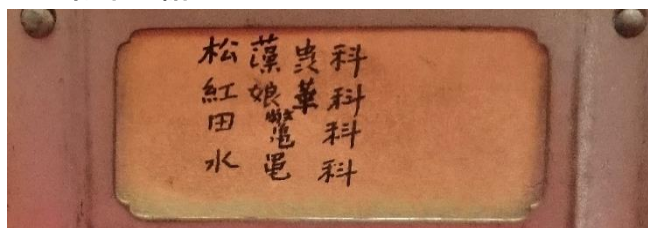 松藻虫科
紅娘華科
田鼈科
水黽科